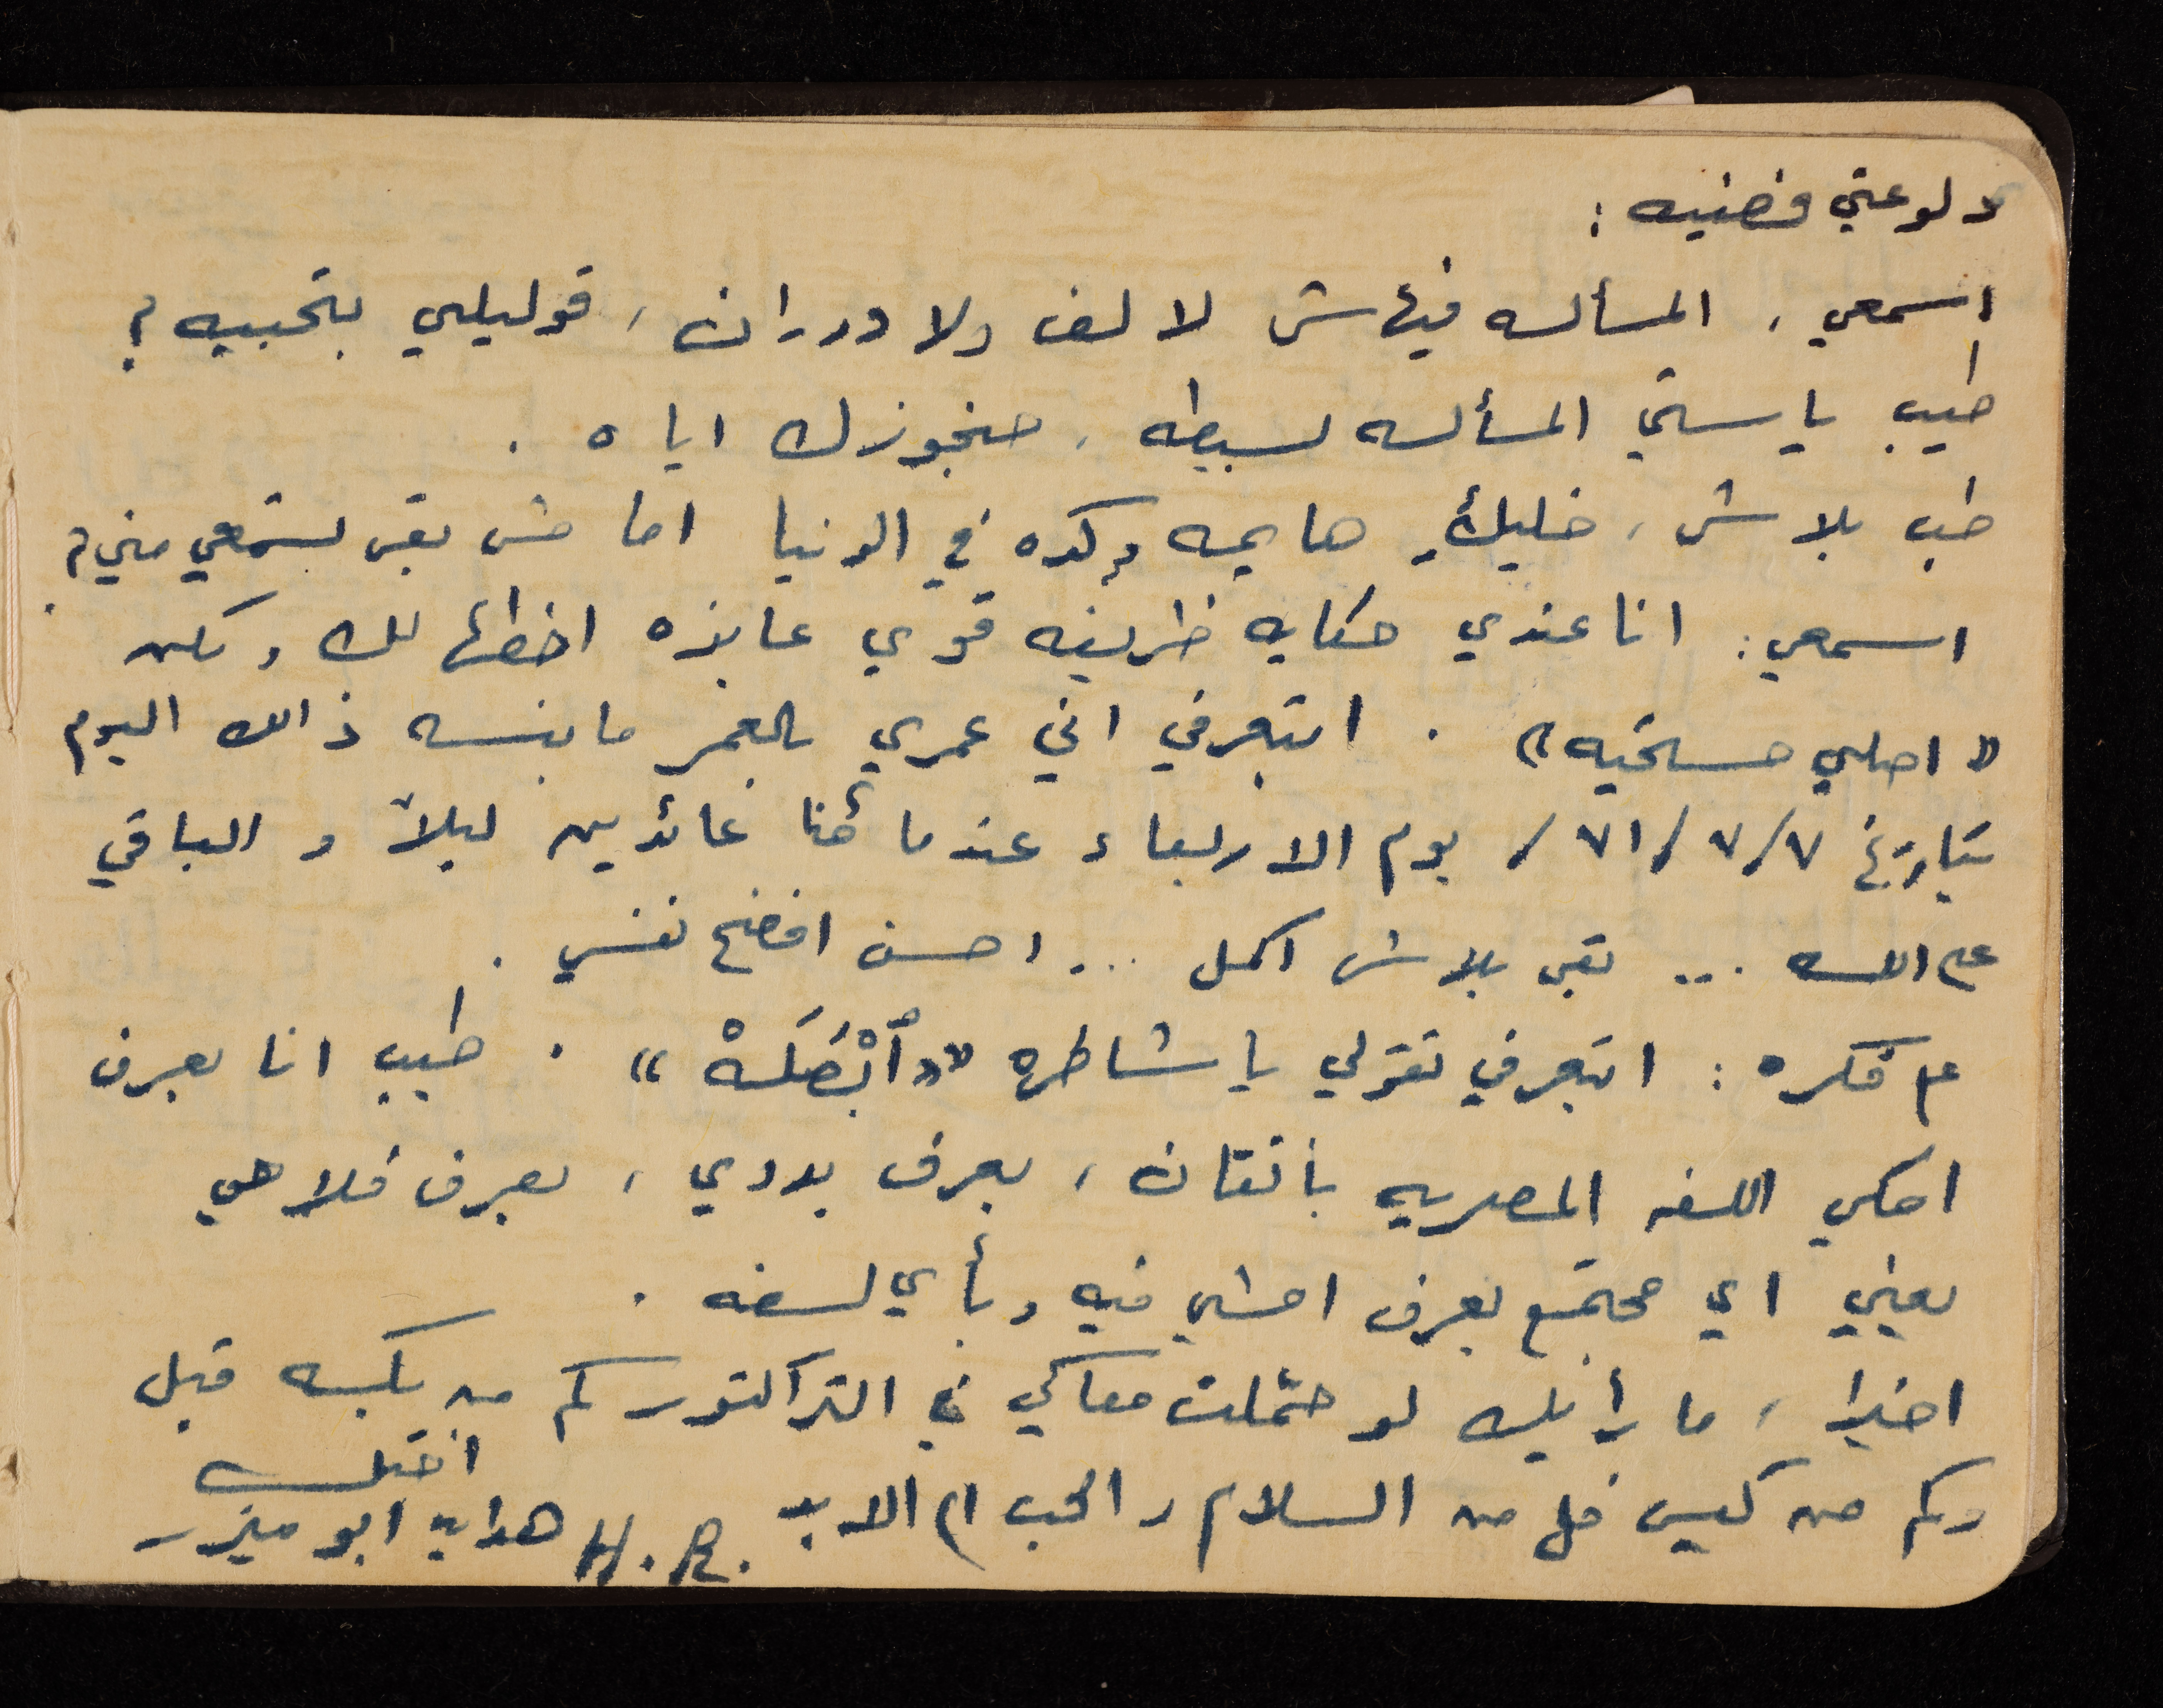 دلوعتي فضيه :
اسمعي ، المسأله فيهاش لا لف ولا دوران ، قوليلي بتحبيه ؟
طيب يا ستي المسأله بسيطه ، حنجوزك اياه .
طب بلاش ، خليكِ هايمه وكده في الدنيا اما مش بقى تستمعي مني ؟
اسمعي : انا عندي حكايه ظريفه قوي عايزه احطها لك ولكن
« اصلي مستحيه » . ابتعرفي اني عمري بالعمر ما بنسه ذالك اليوم
بتاريخ ٧/٧/٧١/ يوم الاربعاء عندما كُنا عائدين ليلاً و الباقي
عم الله ... بقى بلاش اكمل ... احسن افضح نفسي .
عم فكره : ابتعرفي تقولي يا شاطره « أبْصَلَهْ » . طيب انا بعرف
احكي اللغه المصريه بأتقان ، بعرف بدوي ، بعرف فلاحي
يعني اي مجتمع بعرف امشي فيه وبأي لغه .
اخيرا ، ما رأيك لو حمّلت معاكي في التراكتور كم من بكسه قبل
وكم من كيس فل من السلام و الحب الى الابد . H.R.
اختك
هدايه ابو ميزر